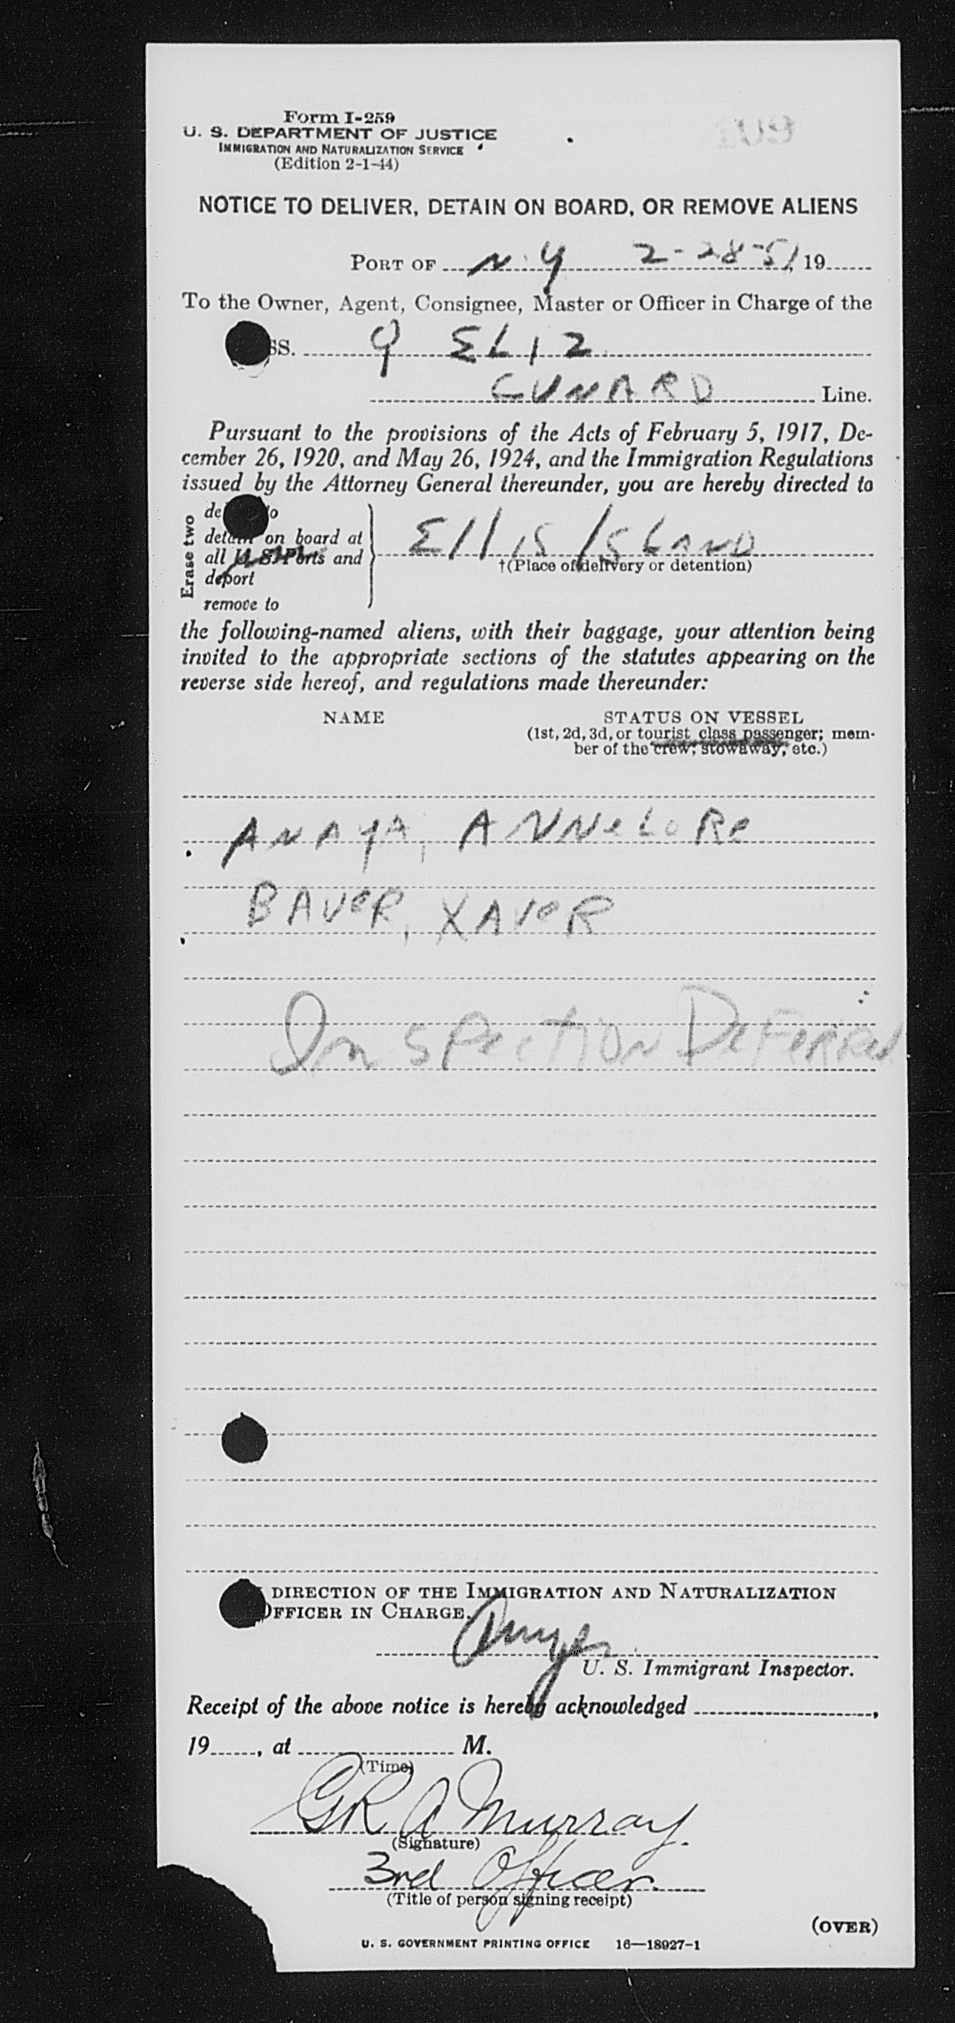 Form I-259
U. S. DEPARTMENT OF JUSTICE
IMMIGRATION AND NATURALIZATION SERVICE
(Edition 2-1-44)
NOTICE TO DELIVER, DETAIN ON BOARD, OR REMOVE ALIENS
PORT OF N.Y 2-28-51 19
To the Owner, Agent, Consignee, Master or Officer in Charge of the
SS. Q ELIZ
CUNARD Line.
Pursuant to the provisions of the Acts of February 5, 1917, De-
cember 26, 1920, and May 26, 1924, and the Immigration Regulations
issued by the Attorney General thereunder, you are hereby directed to
Erase two
de to
detain on board at
all U. S. Ports and
deport
remove to
Ellis Island
†(Place of delivery or detention)
the following-named aliens, with their baggage, your attention being
invited to the appropriate sections of the statutes appearing on the
reverse side hereof, and regulations made thereunder:
NAME
STATUS ON VESSEL
(1st, 2d, 3d, or tourist class passenger; mem-
ber of the crew; stowaway, etc.)
ANAYA, ANNeLoRe
BAUeR, XAVeR
InspectioN DeFeRRed
DIRECTION OF THE IMMIGRATION AND NATURALIZATION
OFFICER IN CHARGE.
U. S. Immigrant Inspector.
Receipt of the above notice is hereby acknowledged ,
19 , at M.
(Time)
GR A Murray.
(Signature)
3rd Officer.
(Title of person signing receipt)
(OVER)
U. S. GOVERNMENT PRINTING OFFICE 16—18927-1